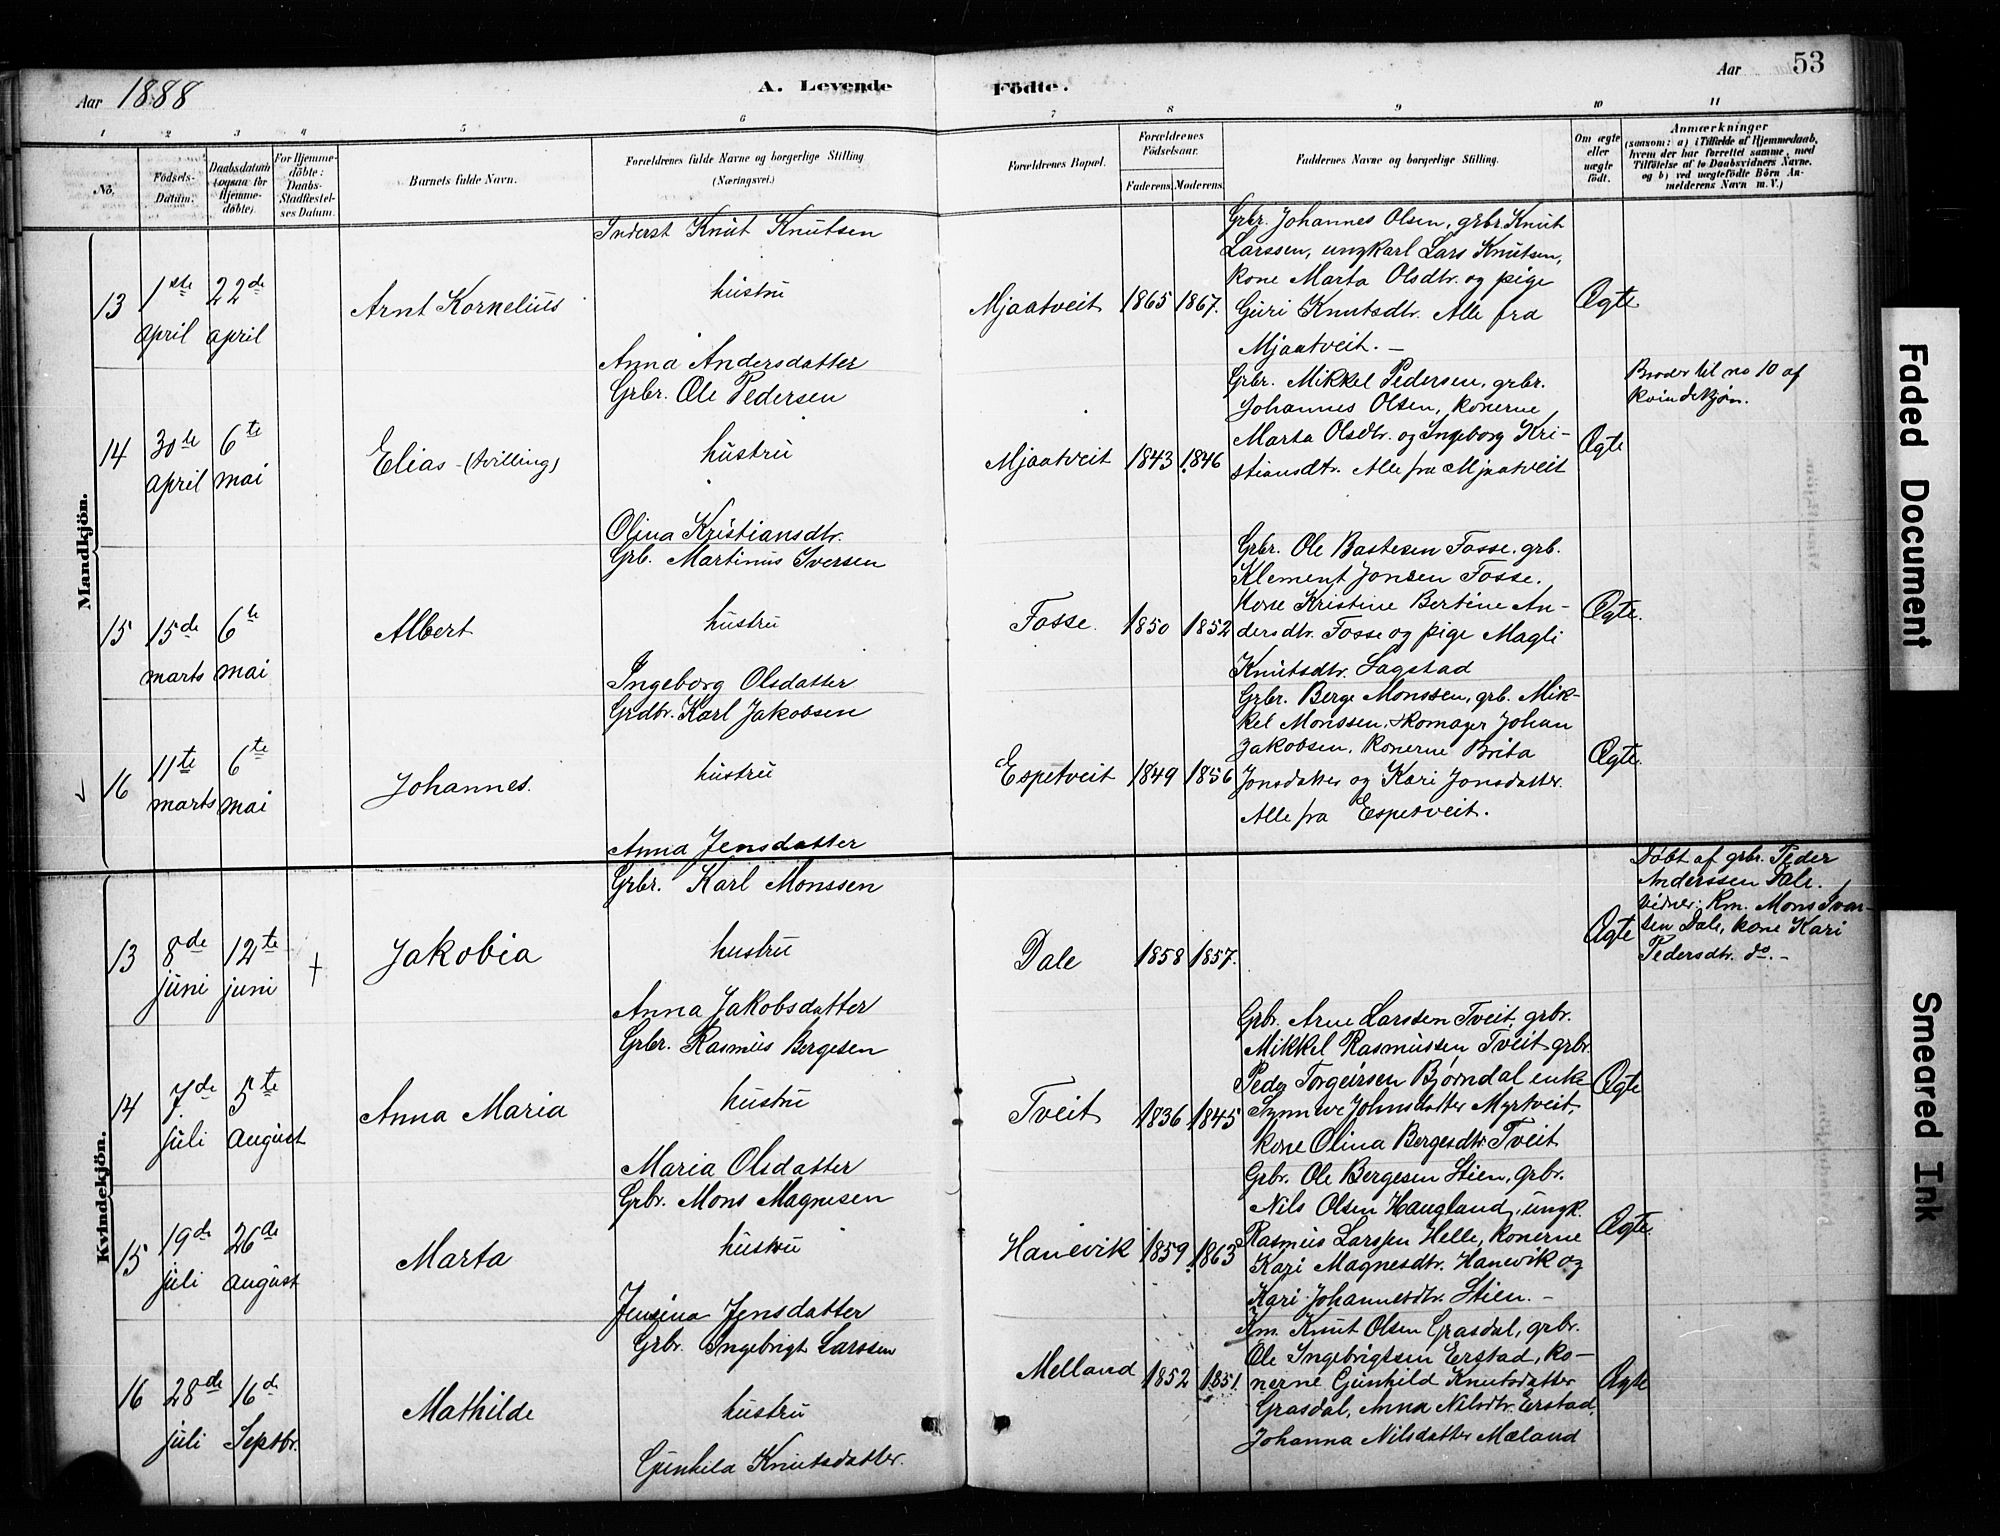 Aar 1888
A. Levende
Födte.
Aar 53
1 2 3 4 5 6 7 8 9 10 11
No.
Födsels-Datum.
Daabsdatum (ogsaa for Hjemme-döbte)
For Hjemme-döbte: Daabs-Stadfæstel-ses Datum.
Barnets fulde Navn.
Forældrenes fulde Navne og borgerlige Stilling
(Næringsvei.)
Forældrenes Bopæl.
Forældrenes Födselsaar.
Faderens. Moderens.
Faddernes Navne og borgerlige Stilling.
Om ægte eller uægte födt.
Anmærkninger
(saasom: a) i Tilfælde af Hjemmedaab,
hvem der har forrettet samme, med
Tilföielse af to Daabsvidners Navne.
og b) ved uægtefödte Börn An-
melderens Navn m. V.)
Mandkjön.
13
1ste april
22de april
Arnt Kornelius
Inderst Knut Knutsen
hustru
Anna Andersdatter
Mjaatveit 1865 1867.
Grbr. Johannes Olsen, grbr. Knut
Larssen, ungkarl Lars Knutsen,
kone Marta Olsdtr. og pige
Guri Knutsdtr. Alle fra
Mjaatveit. –
Ægte
14
30te april
6te mai
Elias - (tvilling)
Grbr. Ole Pedersen
hustru
Olina Kristiansdtr.
Mjaatveit 1843 1846
Grbr. Mikkel Pedersen, grbr.
Johannes Olsen, konerne
Marta Olsdtr. og Ingeborg Kri-
stiansdtr. Alle fra Mjaatveit
Ægte
Broder til no 10 af
kvindekjøn.
15
15de marts
6te mai
Albert
Grb. Martinus Iversen
hustru
Ingeborg Olsdatter
Fosse. 1850 1852
Grbr. Ole Bastesen Fosse. grb.
Klement Jonsen Fosse.
Kone Kristine Bertine An-
dersdtr. Fosse og pige Magli
Knutsdtr. Sagstad
Ægte.
16
11te marts
6te mai
Johannes.
Grdbr. Karl Jakobsen
hustru
Anna Jensdatter
Espetveit 1849 1856
Grbr. Berge Monssen, grb. Mik-
kel Monssen, skomager Johan
Jakobsen, konerne Brita
Jonsdatter og Kari Jonsdatter.
Alle fra Espetveit.
Ægte.
Kvindekjön.
13
8de juni
12te juni
†
Jakobia
Grbr. Karl Monssen
hustru
Anna Jakobsdatter
Dale 1858 1857.
Ægte
Døbt af grbr. Peder
Anderssen Dale.
Vidner: Km. Mons Ivar-
sen Dale, kone Kari
Pedersdtr. do. –
14
7de juli
5te august
Anna Maria
Grbr. Rasmus Bergesen
hustru
Maria Olsdatter
Tveit 1836 1845
Grbr. Arne Larssen Tveit, grbr.
Mikkel Rasmussen Tveit grbr.
Peder Torgeirsen Bjørndal enke
Synneve Johnsdatter Myrtveit,
kone Olina Bergesdtr. Tveit
Ægte
15
19de juli
26de august
Marta
Grbr. Mons Magnesen
hustru
Jensina Jensdatter
Hanevik 1859 1863
Grbr. Ole Bergesen Stien, grbr.
Nils Olsen Haugland, ungk.
Rasmus Larssen Helle, konerne
Kari Magnesdtr. Hanevik og
Kari Johannesdtr. Stien. –
Ægte.
16
28de juli
16d Septbr.
Mathilde
Grbr. Ingebrigt Larssen
hustru
Gunhild Knutsdatter.
Melland 1852 1851.
Km. Knut Olsen Grasdal, grbr.
Ole Ingebrigtsen Erstad, ko-
nerne Gunhild Knutsdatter
Grasdal, Anna Nilsdtr. Erstad,
Johanna Nilsdatter Mæland
Ægte
Faded Document
Smeared Ink